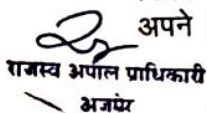 अपने
राजस्व अपील प्राधिकारी
अजमेर